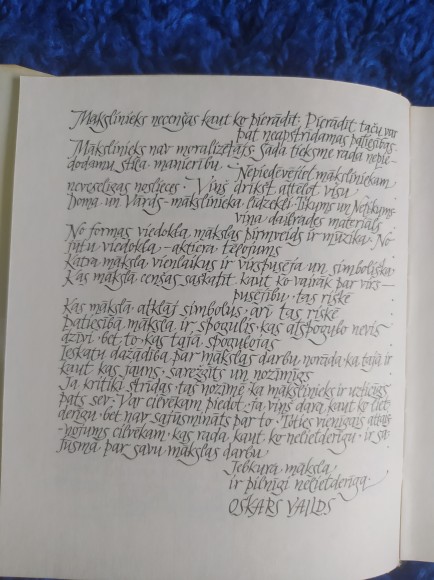 Mākslinieks necenšas kaut ko pierādīt. Pierādīt taču var
pat neapstrīdamas patiesības
Mākslinieks nav moralizētājs. Šāda tieksme rada nepie-
dodamu stila manierību. Nepiedēvējiet māksliniekam
neveselīgas noslieces. Viņš drīkst attēlot visu
Doma un Vārds – mākslinieka līdzekļi. Tikums un Netikums
viņa daiļrades materiāls
No formas viedokļa mākslas pirmveids ir mūzika. No
jūtu viedokļa – aktiera tēlojums
Katra māksla vienlaikus ir virspusēja un simboliska
Kas mākslā cenšas saskatīt kaut ko vairāk par virs-
pusējību, tas riskē
Kas mākslā atklāj simbolus, arī tas riskē
Patiesībā māksla ir spogulis, kas atspoguļo nevis
dzīvi, bet to, kas tajā spoguļojas
Ieskatu dažādība par mākslas darbu norāda, ka tajā ir
kaut kas jauns, sarežģīts un nozīmīgs
Ja kritiķi strīdas, tas nozīmē, ka mākslinieks ir uzticīgs
pats sev. Var cilvēkam piedot, ja viņš dara kaut ko liet-
derīgu, bet nav sajūsmināts par to. Toties vienīgais attais-
nojums cilvēkam, kas rada kaut ko nelietderīgu, ir sa-
jūsma par savu mākslas darbu
Jebkura māksla
ir pilnīgi nelietderīga
OSKARS VAILDS